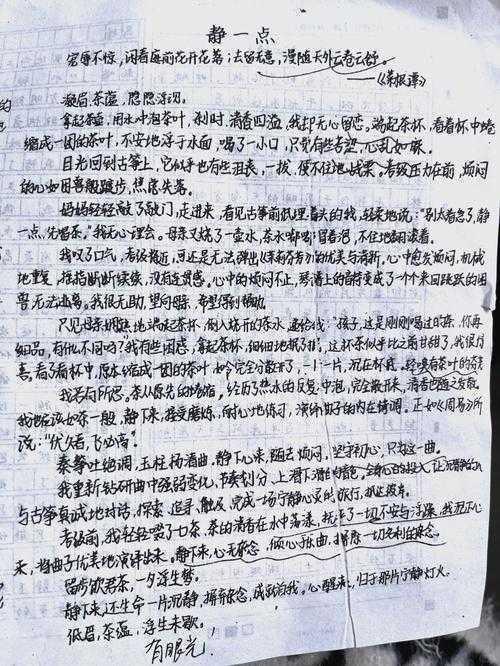 静一点
宠辱不惊，闲看庭前花开花落；去留无意，漫随天外云卷云舒。
——《菜根谭》
拿起茶壶，用水冲泡茶叶，刹时，清香四溢，我却无心留恋，端起茶杯，看着杯中蜷
缩成一团的茶叶，不安地浮于水面，喝了一小口，只觉有些苦涩，心乱如麻。
目光回到古筝上，它似乎也有些沮丧，一拨，便不住地战栗。考级压力在前，烦闷
的心如困兽般踱步，焦虑失落。
妈妈轻轻敲了敲门，走进来，看见古筝前低埋着头的我，轻柔地说："别太着急了，静
一点，先喝茶。"我无心理会。母亲又烧了一壶水，茶水嘟嘟冒着泡，不住地翻滚着。
我叹了口气，考级接近，可还是无法弹出《茉莉芬芳》的优美与清新，心中愈发烦闷，机械
地重复，摇指断断续续，没有连贯感。心中的烦闷不止，琴谱上的音符变成了一个个来回跳跃的困
兽无法出笼。我很无助，望向母亲，希望得到帮助。
只见母亲娴熟地端起茶杯，倒入烧开的茶水，递给我："孩子，这是刚刚喝过的茶，你再
细品，有什么不同吗？"我有些困惑，拿起茶杯，细细地抿了抿，这杯茶似乎比之前甘甜了，我很惊
喜。看了看杯中，原本缩成一团的茶叶如今完全分散开了，一片一片，沉在杯底。
我若有所思。茶从原先的蜷缩，经历热水的反复冲泡，完全散开来，清香也随之散发。
我也应该如茶一般，静下来，接受磨炼，耐心地练习，演绎曲子的内在情调。正如《周易》所
说："伏久者，飞必高"。
秦筝吐绝调，玉柱扬清曲，静下心来，随去烦闷，坚守初心，只为这一曲。
我重新钻研曲中强弱变化，节奏划分，上滑下滑的音色。
与古筝真诚地对话，探索，追寻，触及，完成一场宁静心灵的旅行。
考级前，我轻轻喝了一口茶，茶的清香在水中荡漾，抚平了一切不安与浮躁，
来，将曲子优美地演绎出来。静下来，心无杂念，倾心于曲，摒弃一切名利的杂念。
留香饮君茶，一夕浮生梦。
静下来，还生命一片沉静，摒弃杂念，成就自我。心醒来，归于那片宁静灯火。
低眉，茶蕴，浮生未歇。
有眼光！